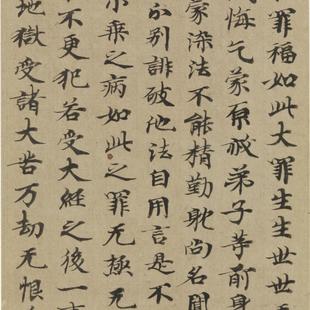 罪福如此大罪生生世世
悔乞蒙原弟子等前身
家染法不能精勤耽尚名聞
别誹破他法自用言是不
小乘之病如此之罪无極无
不更犯若受大經之後一
地獄受諸大苦万劫无恨